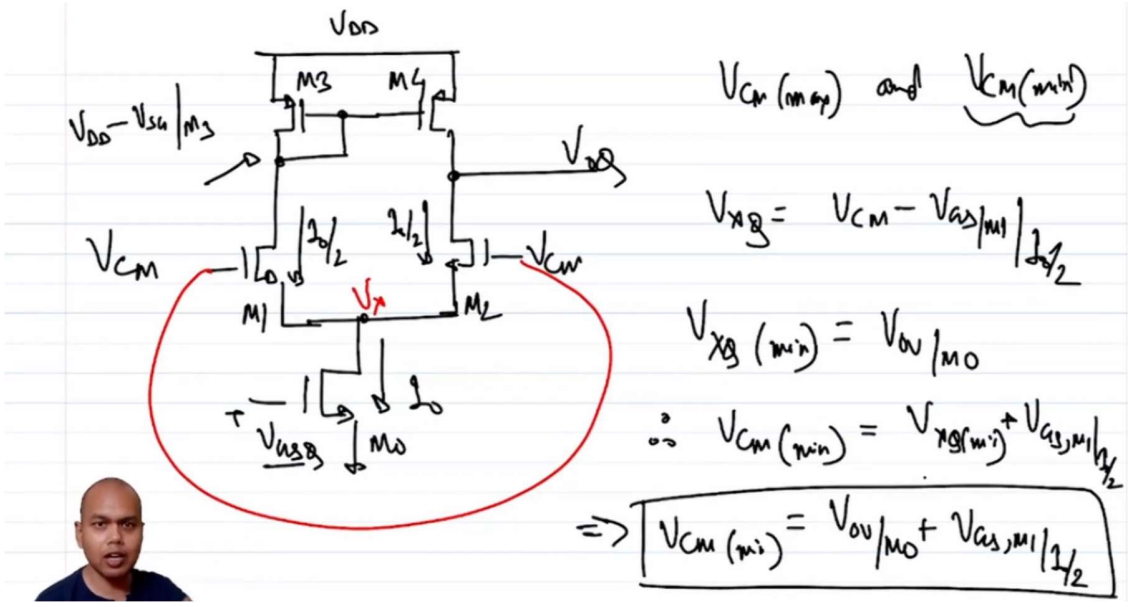 V_DD
M3 M4
V_DD - V_SG|M3
V_0Q
V_CM
I_0/2 I_0/2
V_CM
M1 V_X M2
I_0
+ V_GSQ M0
V_CM (max) and V_CM (min)
V_XQ = V_CM - V_GS/M1|I_0/2
V_XQ (min) = V_OV/M0
∴ V_CM (min) = V_XQ(min) + V_GS,M1|I_0/2
=> V_CM (min) = V_OV/M0 + V_GS,M1|I_0/2